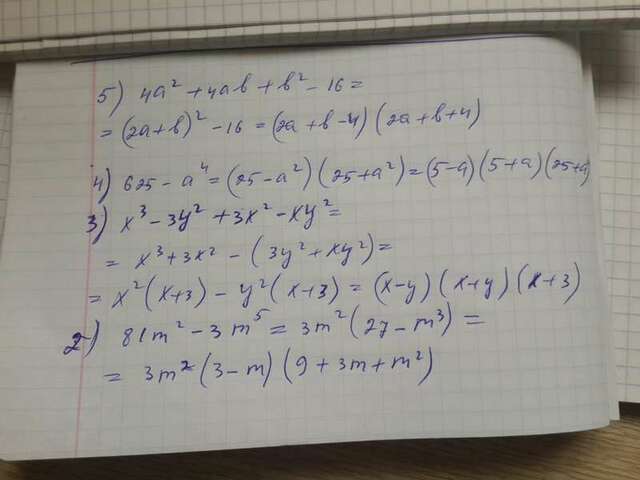 5) 4a² + 4ab + b² - 16 =
= (2a+b)² - 16 = (2a + b - 4) (2a + b + 4)
4) 625 - a⁴ = (25 - a²) (25 + a²) = (5 - a) (5 + a) (25 + a
3) x³ - 3y² + 3x² - xy² =
= x³ + 3x² - (3y² + xy²) =
= x² (x + 3) - y² (x + 3) = (x - y) (x + y) (x + 3)
2) 81m² - 3m⁵ = 3m² (27 - m³) =
= 3m² (3 - m) (9 + 3m + m²)